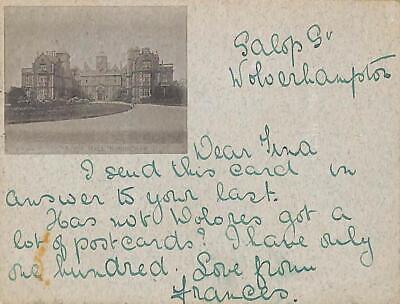 Salop St
Wolverhampton
Dear Tina
I send this card in
answer to your last.
Has not Dolores got a
lot of postcards? I have only
one hundred. Love from
Frances.